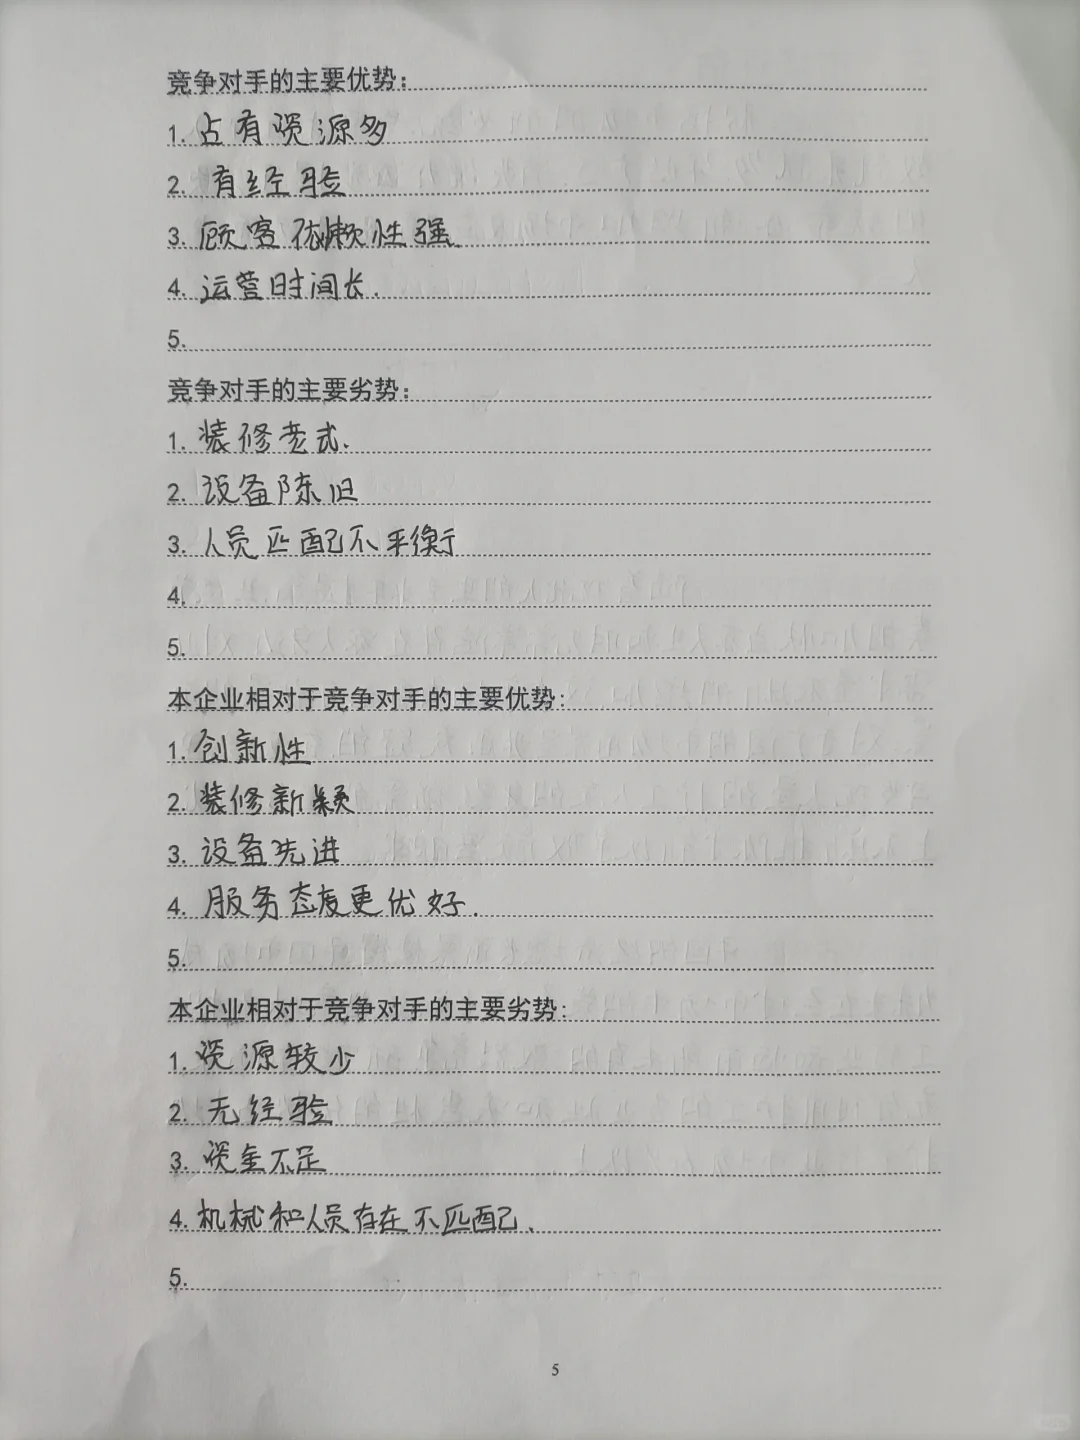 竞争对手的主要优势:
1. 占有资源多
2. 有经验
3. 顾客依赖性强
4. 运营时间长.
5.
竞争对手的主要劣势:
1. 装修老式.
2. 设备陈旧
3. 人员匹配不平衡
4.
5.
本企业相对于竞争对手的主要优势:
1. 创新性
2. 装修新颖
3. 设备先进
4. 服务态度更优好.
5.
本企业相对于竞争对手的主要劣势:
1. 资源较少
2. 无经验
3. 资金不足
4. 机械和人员存在不匹配.
5.
5